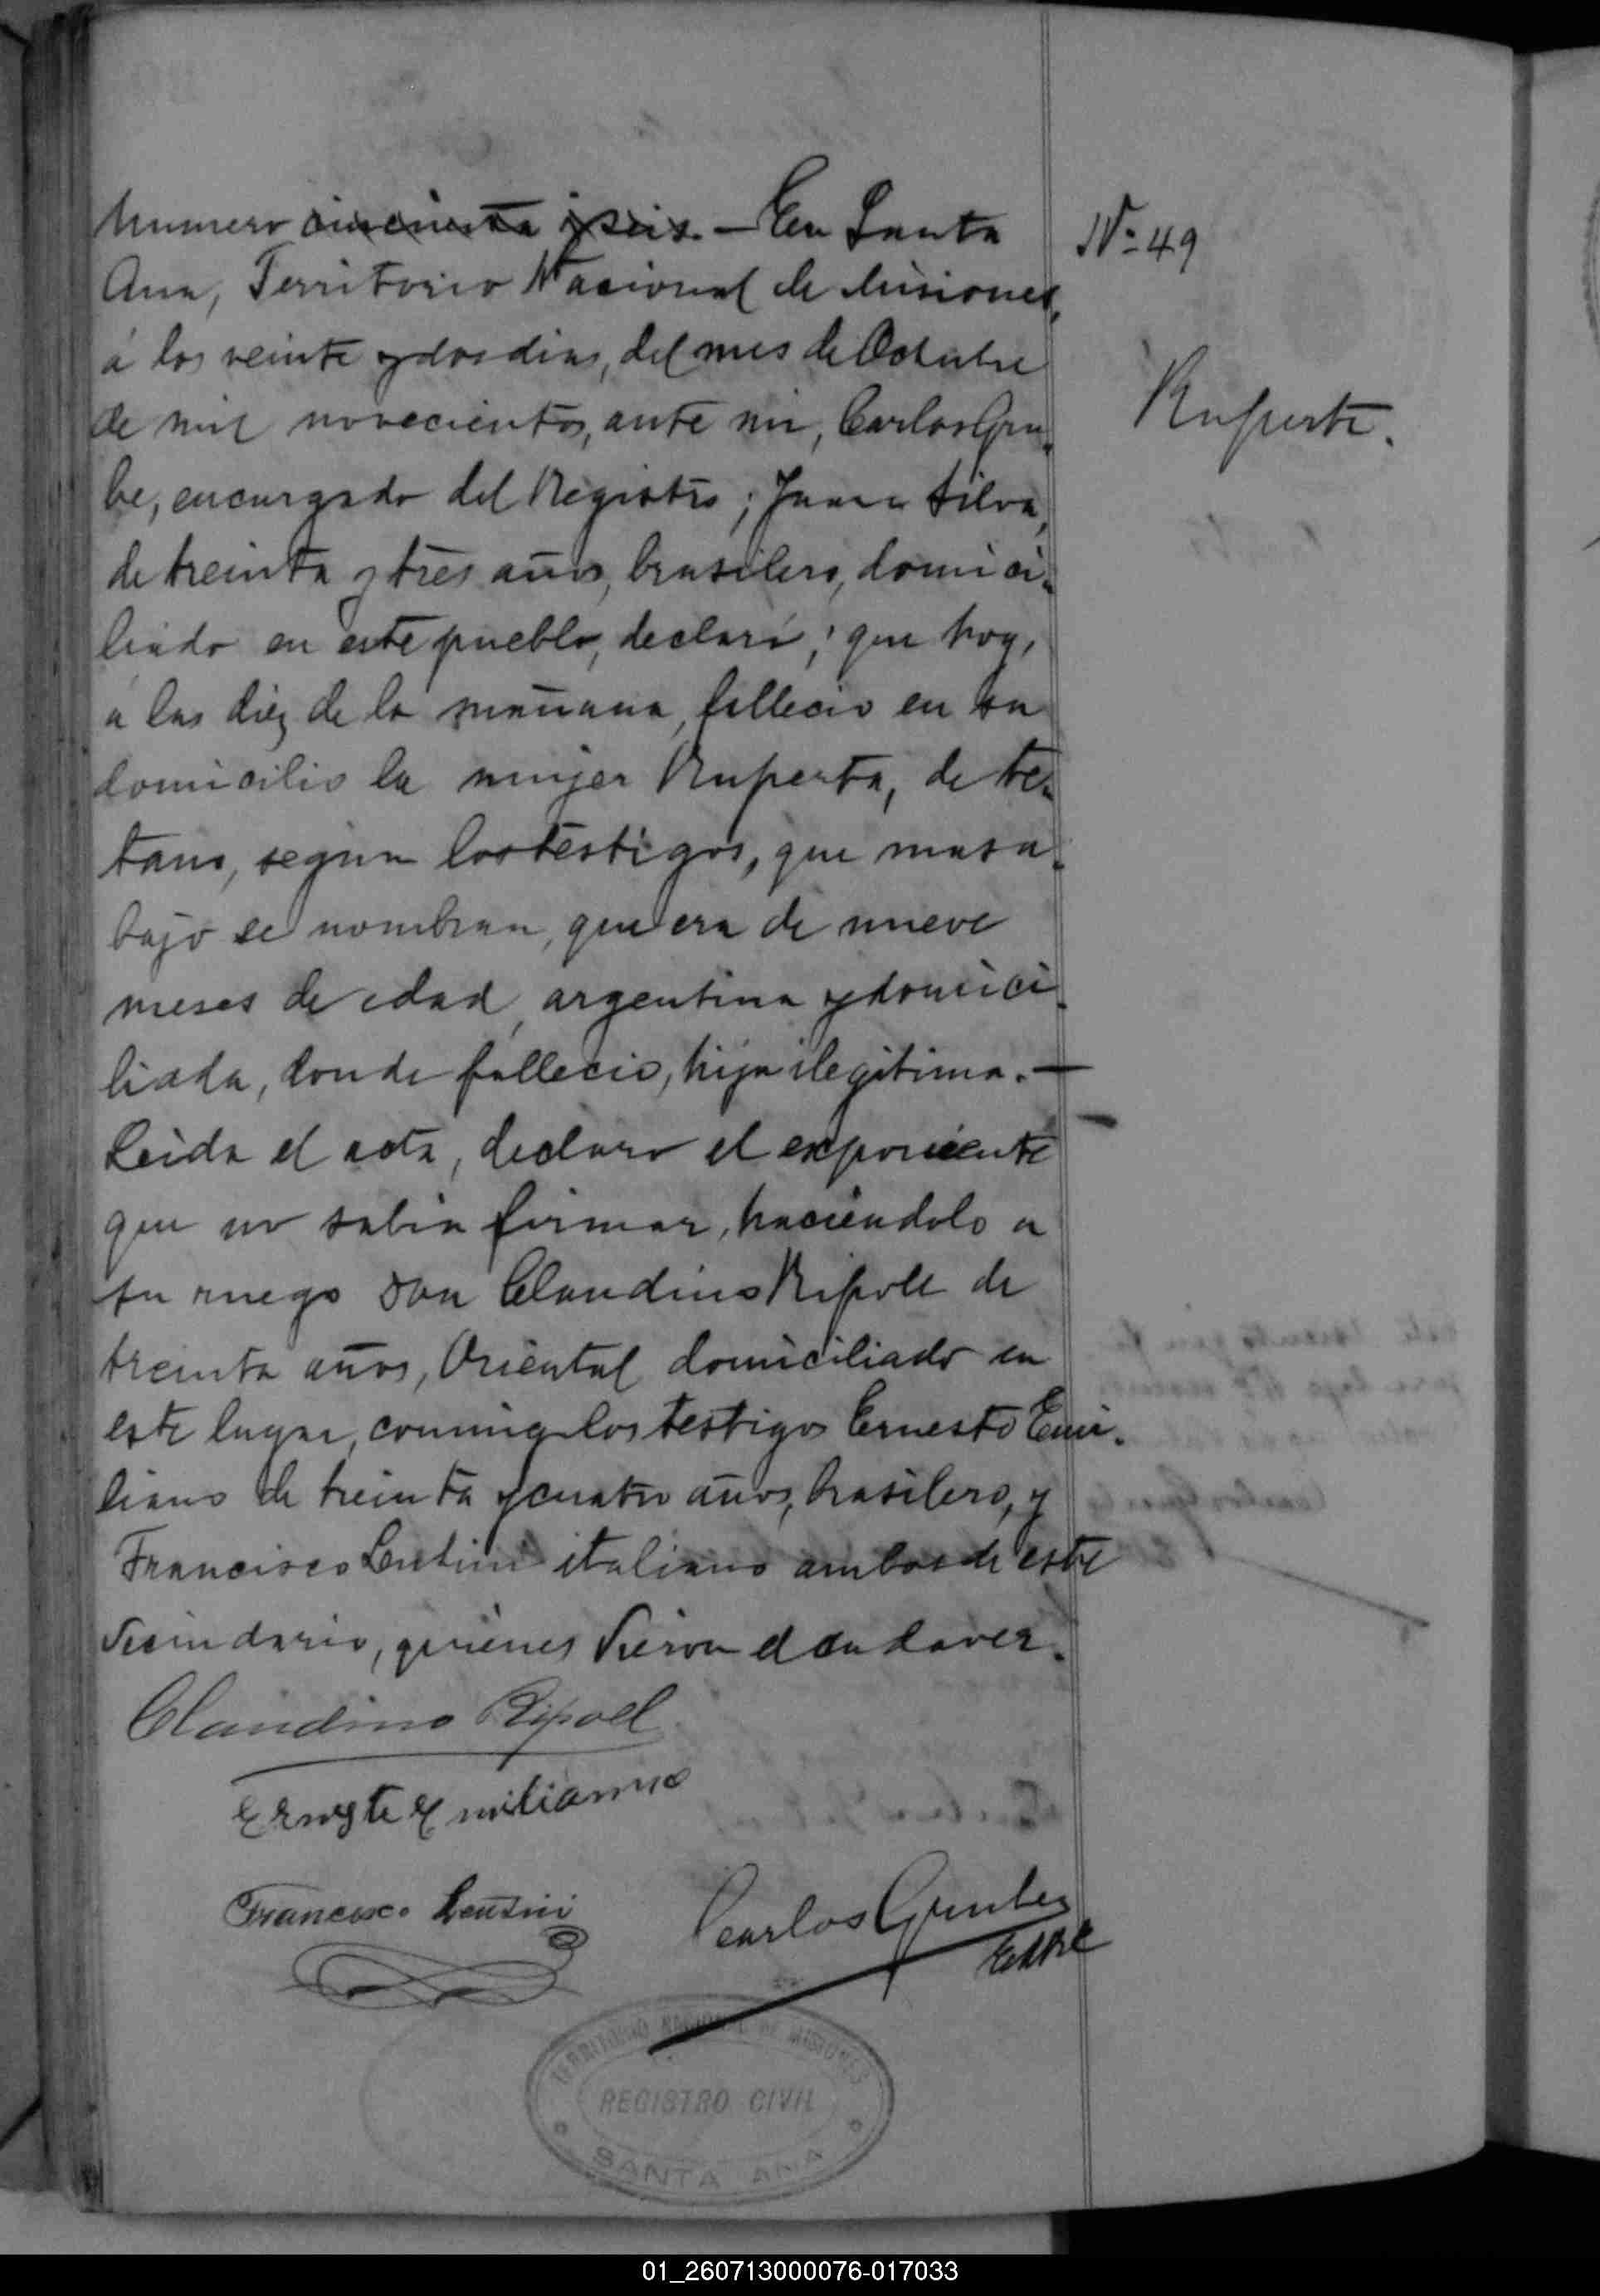 Numero cincuenta y seis. — En Santa
Ana, Territorio Nacional de Misiones,
á los veinte y dos dias, del mes de Octubre
de mil novecientos, ante mi, Carlos Gru-
be, encargado del Registro; Juan Silva,
de treinta y tres años, brasilero, domici-
liado en este pueblo, declaró; que hoy,
a las diez de la mañana, fallecio en su
domicilio la mujer Ruperta, de te-
tano, segun los testigos, que mas a-
bajo se nombran, que era de nueve
meses de edad, argentina y domici-
liada, donde fallecio, hija ilegitima. —
Leida el acta, declaro el exponente
que no sabia firmar, haciendolo a
su ruego don Claudino Ripoll de
treinta años, Oriental domiciliado en
este lugar, conmigo los testigos Ernesto Emi-
liano de treinta y cuatro años, brasilero, y
Francisco Lentini italiano ambos de este
vecindario, quienes vieron el cadaver.
Claudino Ripoll
Ernesto Emilianno
Francisco Lentini
Carlos Grube
Nº 49
Ruperta.
TERRITORIO NACIONAL DE MISIONES
REGISTRO CIVIL
SANTA ANA
01_260713000076-017033